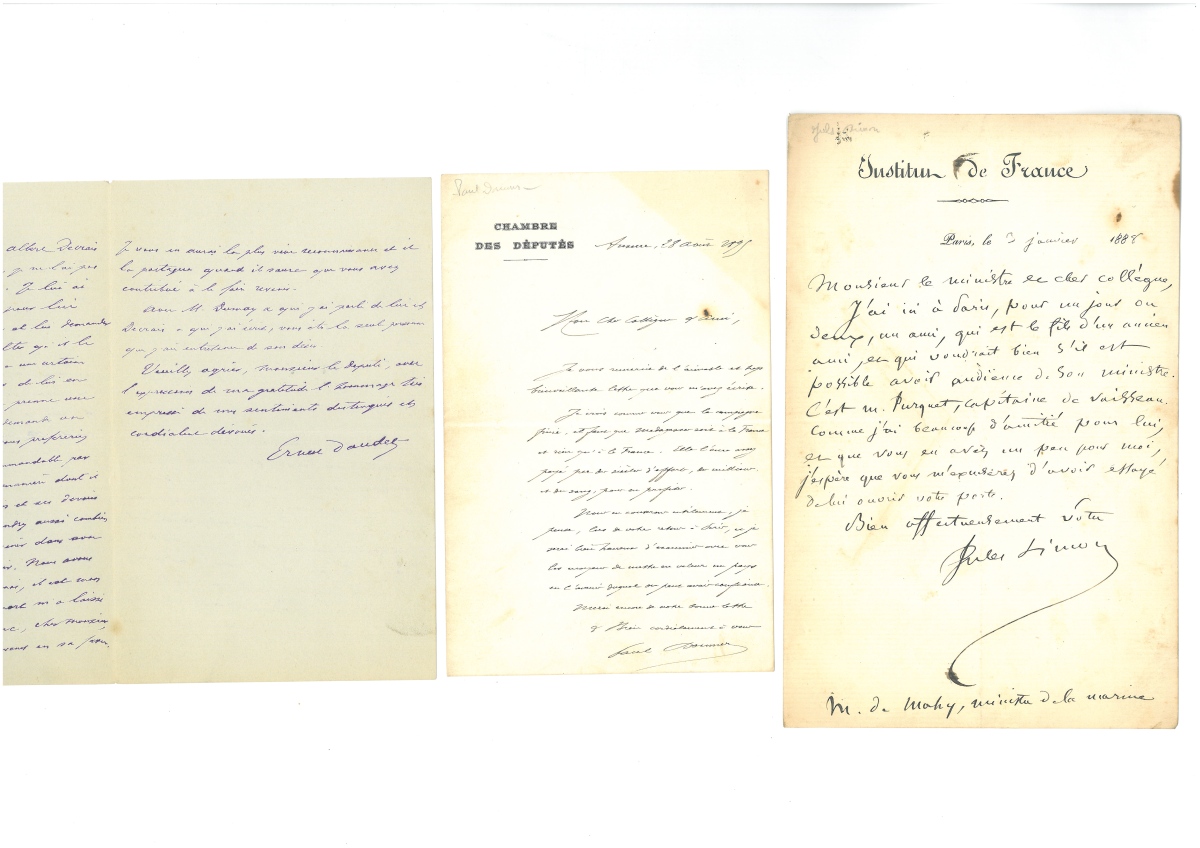 albert Decrais
Je lui ai
pour lui
et lui demander
de lui en
prenne une
vous préféreriez
recommandable par
manière dont il
et ses devoirs
aussi combien
dans une
Nous avons
m'a laissé
cher Monsieur
en sa faveur.
Je vous en aurai la plus vive reconnaissance et il
la partagera quand il saura que vous avez
contribué à le faire revenir.
Avec M. Dumay à qui j'ai parlé de lui et
Decrais à qui j'ai écrit, vous êtes la seule personne
que j'ai entretenue de son désir.
Veuillez agréer, Monsieur le député, avec
l'expression de ma gratitude l'hommage très
empressé de mes sentiments distingués et
cordialement dévoués.
Ernest Daudet
Paul Doumer
CHAMBRE
DES DÉPUTÉS
28 août 1895
Mon cher Collègue & ami,
Je vous remercie de l'aimable et très
bienveillante lettre que vous m'avez écrite.
Je crois comme vous que la campagne
finie, il faut que Madagascar soit à la France
et rien qu'à la France. Elle l'aura assez
payé par des siècles d'efforts, de millions
et du sang, pour en profiter.
Nous en causerons utilement, je
pense, lors de votre retour à Paris, et je
serai bien heureux d'examiner avec vous
les moyens de mettre en valeur un pays
en l'avenir duquel on peut avoir confiance.
Merci encore de votre bonne lettre
& bien cordialement à vous
Paul Doumer
Jules Simon
Institut de France
Paris, le 3 janvier 1888
Monsieur le ministre et cher collègue,
J'ai ici à Paris, pour un jour ou
deux, un ami, qui est le fils d'un ancien
ami, et qui voudrait bien s'il est
possible avoir audience de son ministre.
C'est M. Purquet, capitaine de vaisseau.
Comme j'ai beaucoup d'amitié pour lui,
et que vous en avez un peu pour moi,
j'espère que vous m'excuserez d'avoir essayé
de lui ouvrir votre porte.
Bien affectueusement vôtre
Jules Simon
M. de Mahy, ministre de la marine